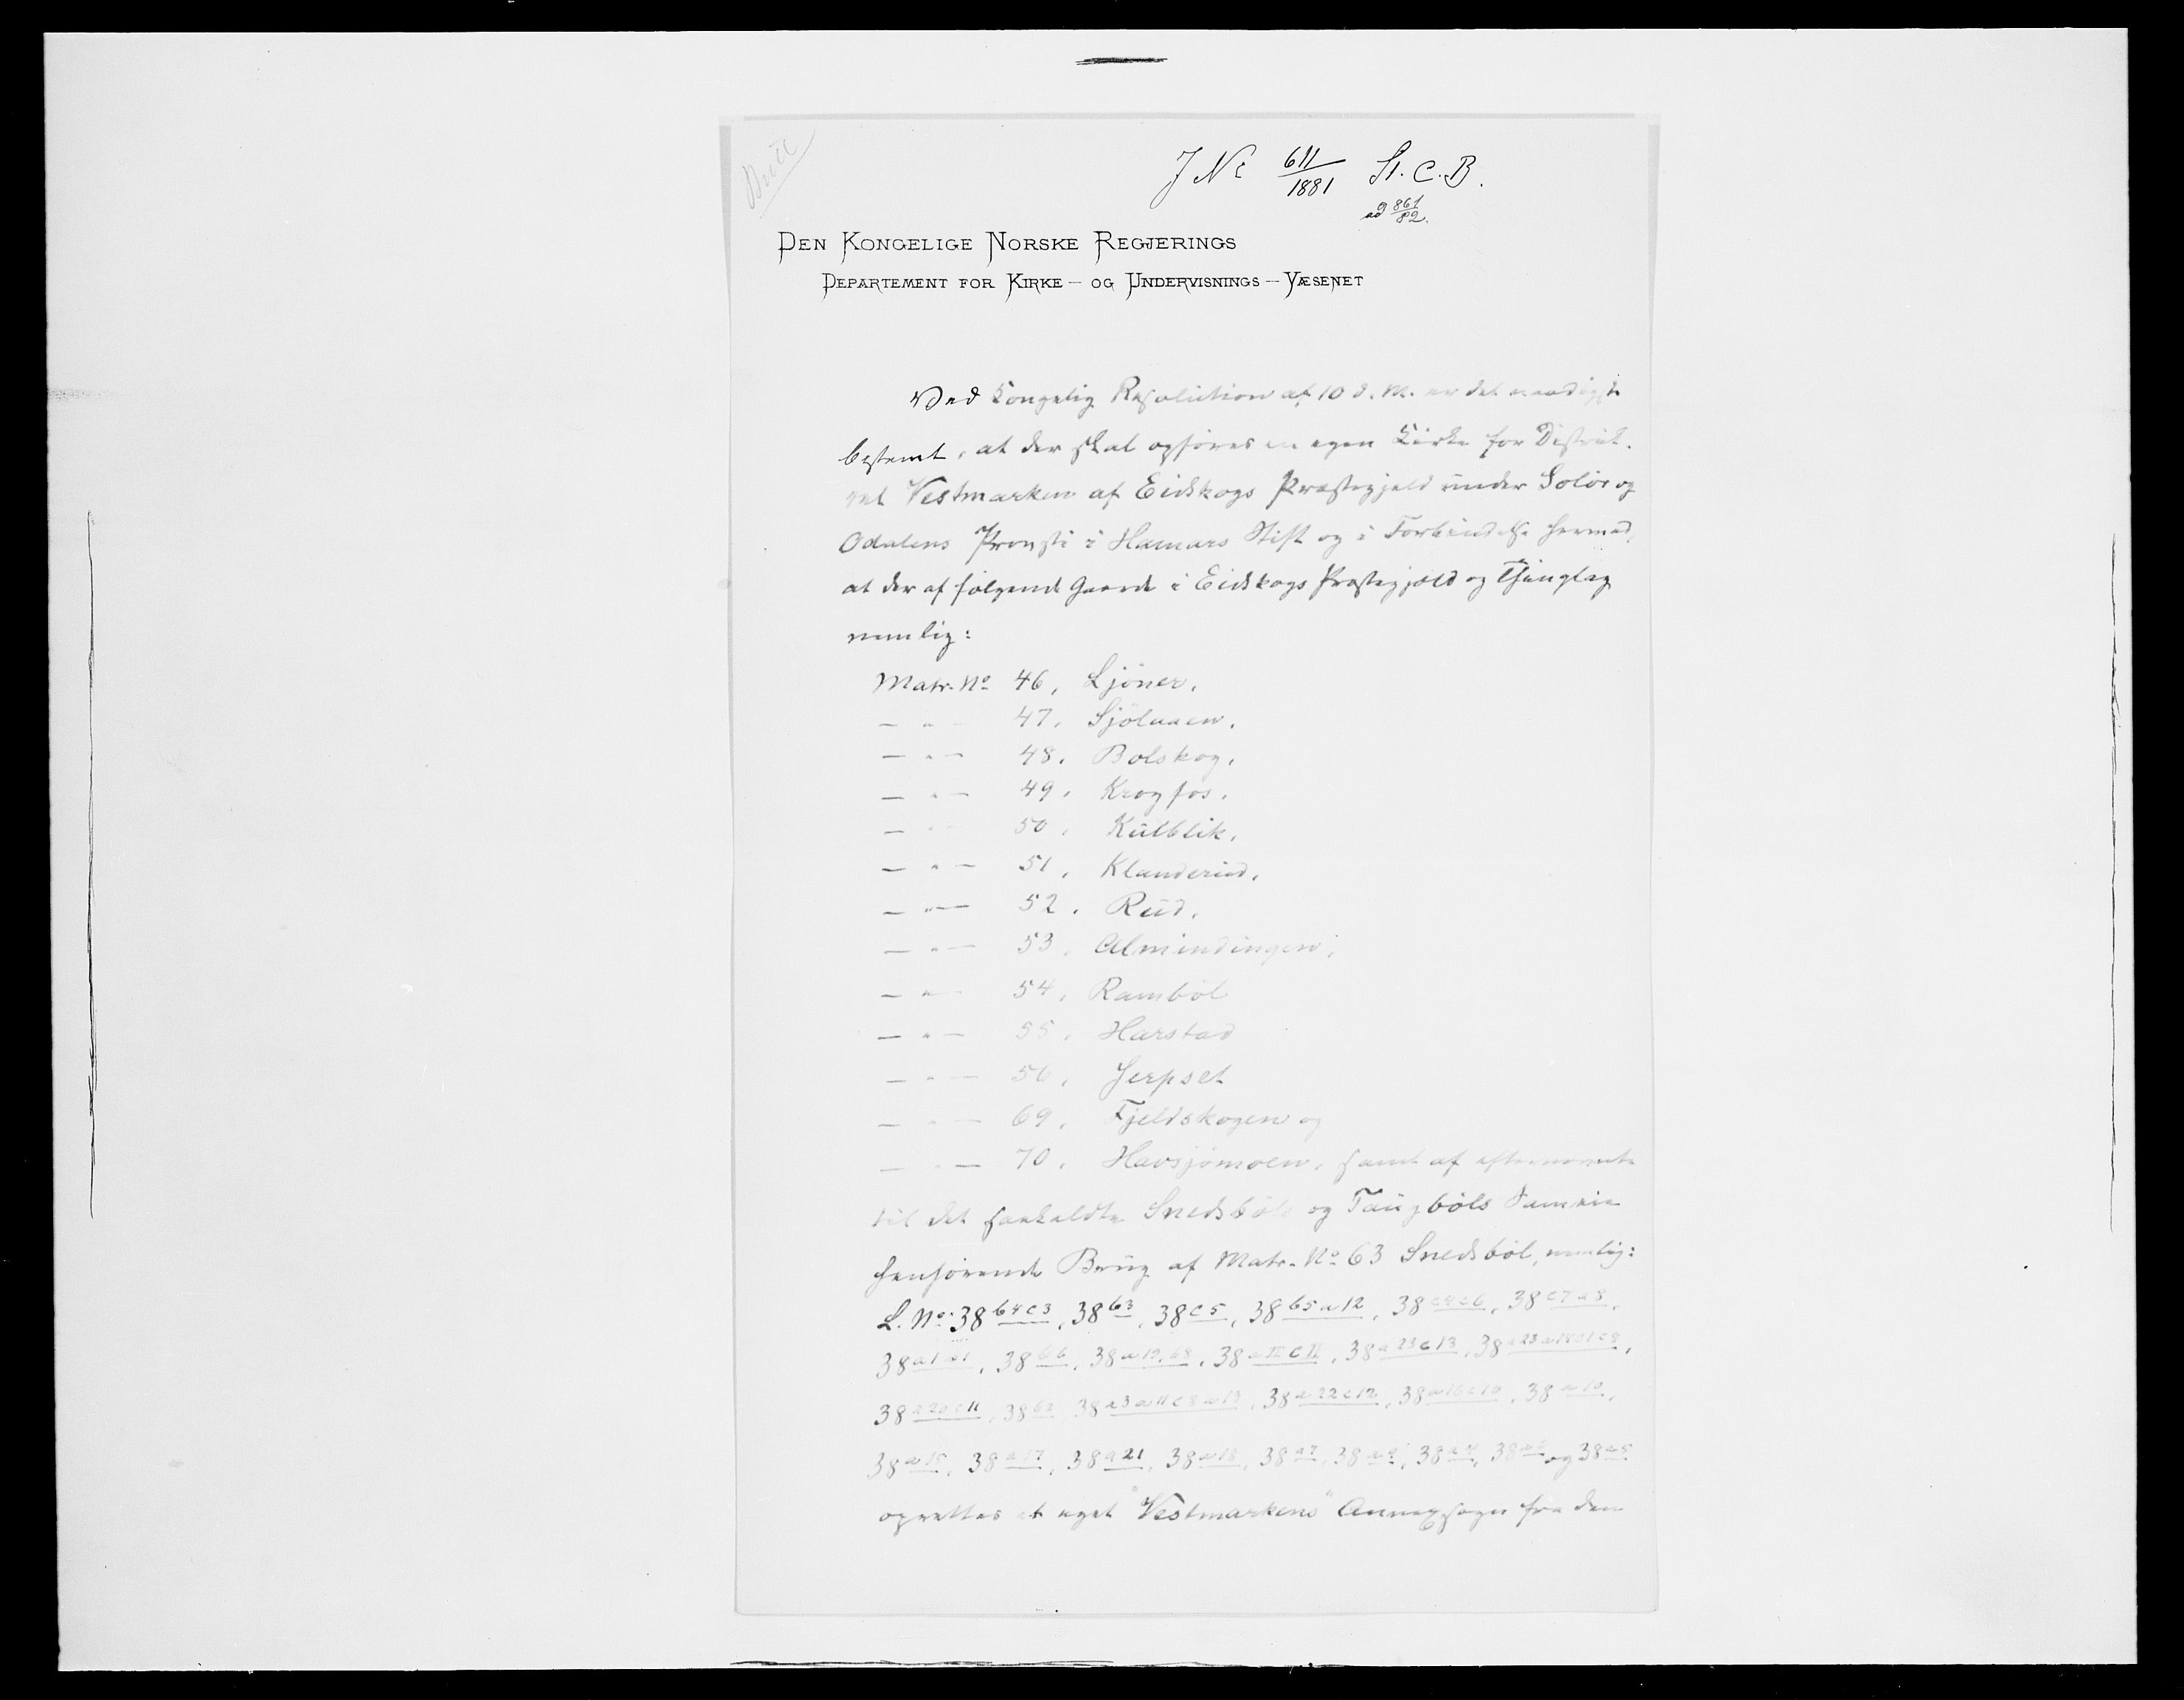 J No 611/1881 St. C. B.
ad 861/82.
DEN KONGELIGE NORSKE REGJERINGS
DEPARTEMENT FOR KIRKE- OG UNDERVISNINGS-VÆSENET
Ved kongelig Resolution af 10 d. M. er det naadigst
bestemt, at der skal opføres en egen Kirke for Distrik-
tet Vestmarken af Eidskogs Præstegjeld under Solør og
Odalens Provsti i Hamars Stift og i Forbindelse hermed,
at der af følgende Gaarde i Eidskogs Præstegjeld og Thinglag
nemlig:
Matr. No 46, Ljöner,
— " — 47, Sjölaaen,
— " — 48, Bolskog,
— " — 49, Krogfos,
— " — 50, Kulblik,
— " — 51, Klanderud,
— " — 52, Rud,
— " — 53, Almindingen,
— " — 54, Ramböl
— " — 55, Harstad
— " — 56, Jerpset
— " — 69, Fjeldskogen og
— " — 70, Havsjömoen, samt af efternævnte
til det saakaldte Snedsböls og Taugböls Sameie
henhørende Brug af Matr. No 63 Snedsböl, nemlig:
L. No 38 b4c3, 38 b3, 38 c5, 38 b5a12, 38 c4c6, 38 c7a8,
38 a1a1, 38 b6, 38 a19.b8, 38 a II c II, 38 a23c13,
38 a20c11, 38 b2, 38 a3a11c8a13, 38 a22c12, 38 a16c10, 38 a10,
38 a15, 38 a17, 38 a21, 38 a18, 38 a7, 38 a9, 38 a4, 38 og 38 a5
oprettes et eget "Vestmarkens" Annexsogn fra den